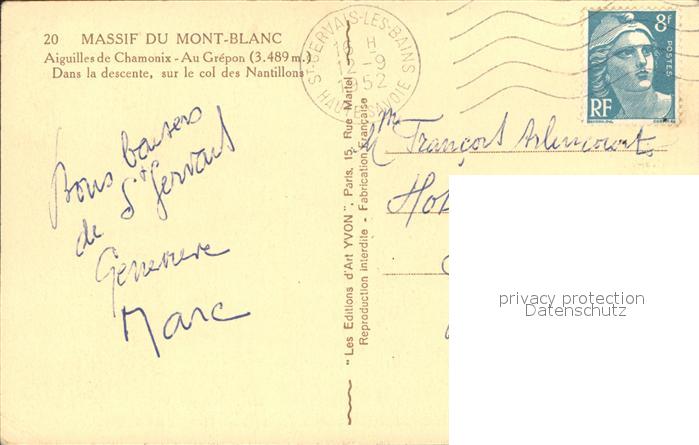 20 MASSIF DU MONT-BLANC
Aiguilles de Chamonix - Au Grépon (3.489 m.)
Dans la descente, sur le col des Nantillons
ST-GERVAIS-LES-BAINS
18 H
-9
1952
HAUTE-SAVOIE
8F
POSTES
RF
Bons baisers
de St Gervais
Genevieve
Marc
"Les Editions d'Art YVON", Paris, 15, Rue Martel
Reproduction interdite - Fabrication Française
François
privacy protection
Datenschutz